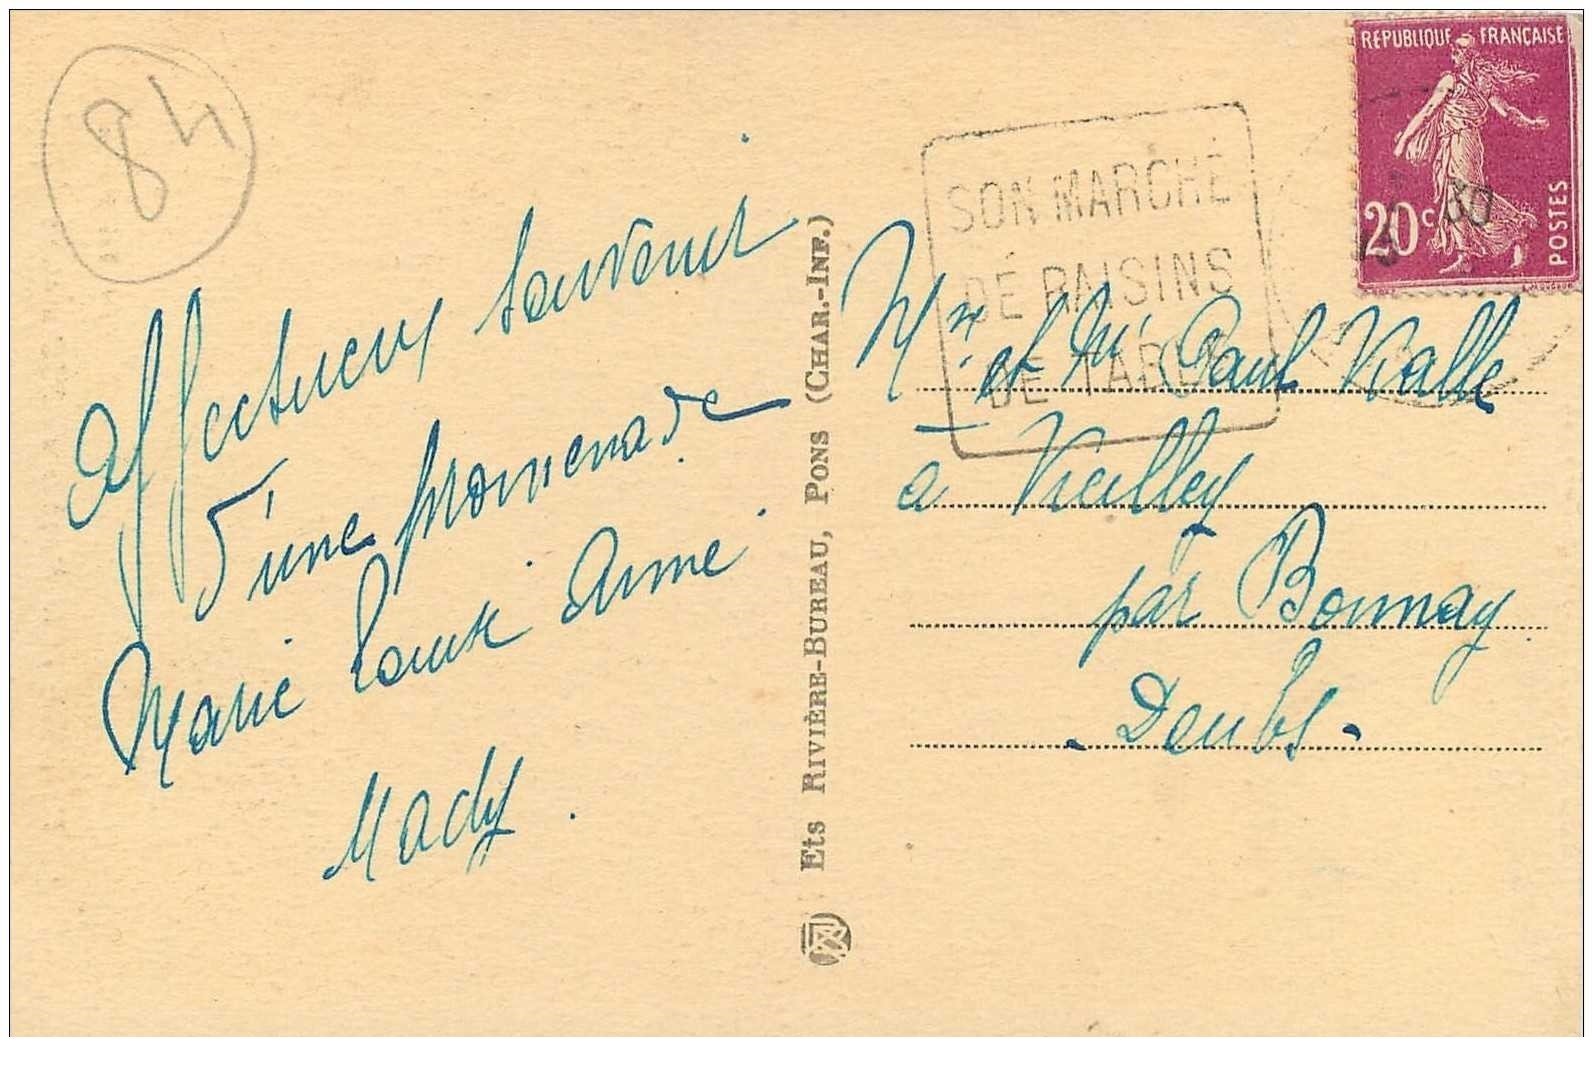 84
Affectueux souvenir
d'une promenade
Marie Louise Aimé
Mady.
Ets RIVIÈRE-BUREAU, PONS (CHAR.-INF.)
SON MARCHÉ
DE RAISINS
DE TABLE
REPUBLIQUE FRANÇAISE
20c
POSTES
30
Mr. et Me Paul Vialle
a Vieilley
par Bonnay
- Doubs -